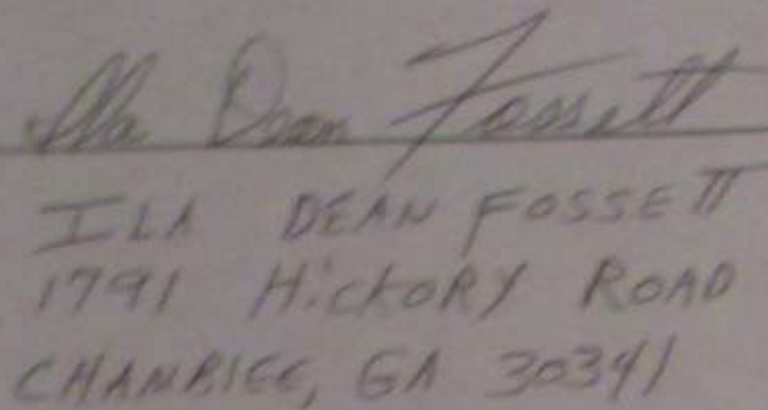 Ila Dean Fossett
ILA DEAN FOSSETT
1791 HICKORY ROAD
CHAMBLEE, GA 30341